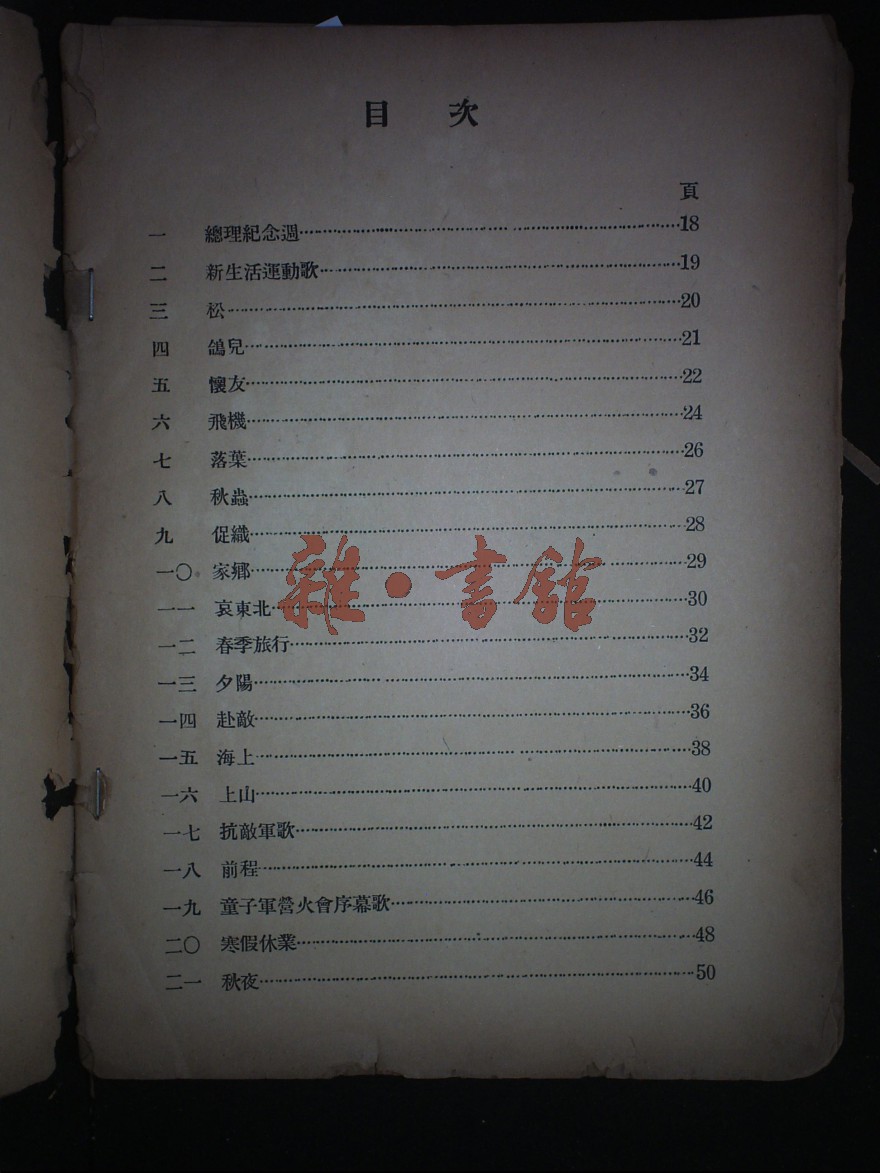 目 次
頁
一 總理紀念週 18
二 新生活運動歌 19
三 松 20
四 鴿兒 21
五 懷友 22
六 飛機 24
七 落葉 26
八 秋蟲 27
九 促織 28
一〇 家鄉 29
一一 哀東北 30
一二 春季旅行 32
一三 夕陽 34
一四 赴敵 36
一五 海上 38
一六 上山 40
一七 抗敵軍歌 42
一八 前程 44
一九 童子軍營火會序幕歌 46
二〇 寒假休業 48
二一 秋夜 50
雜·書館